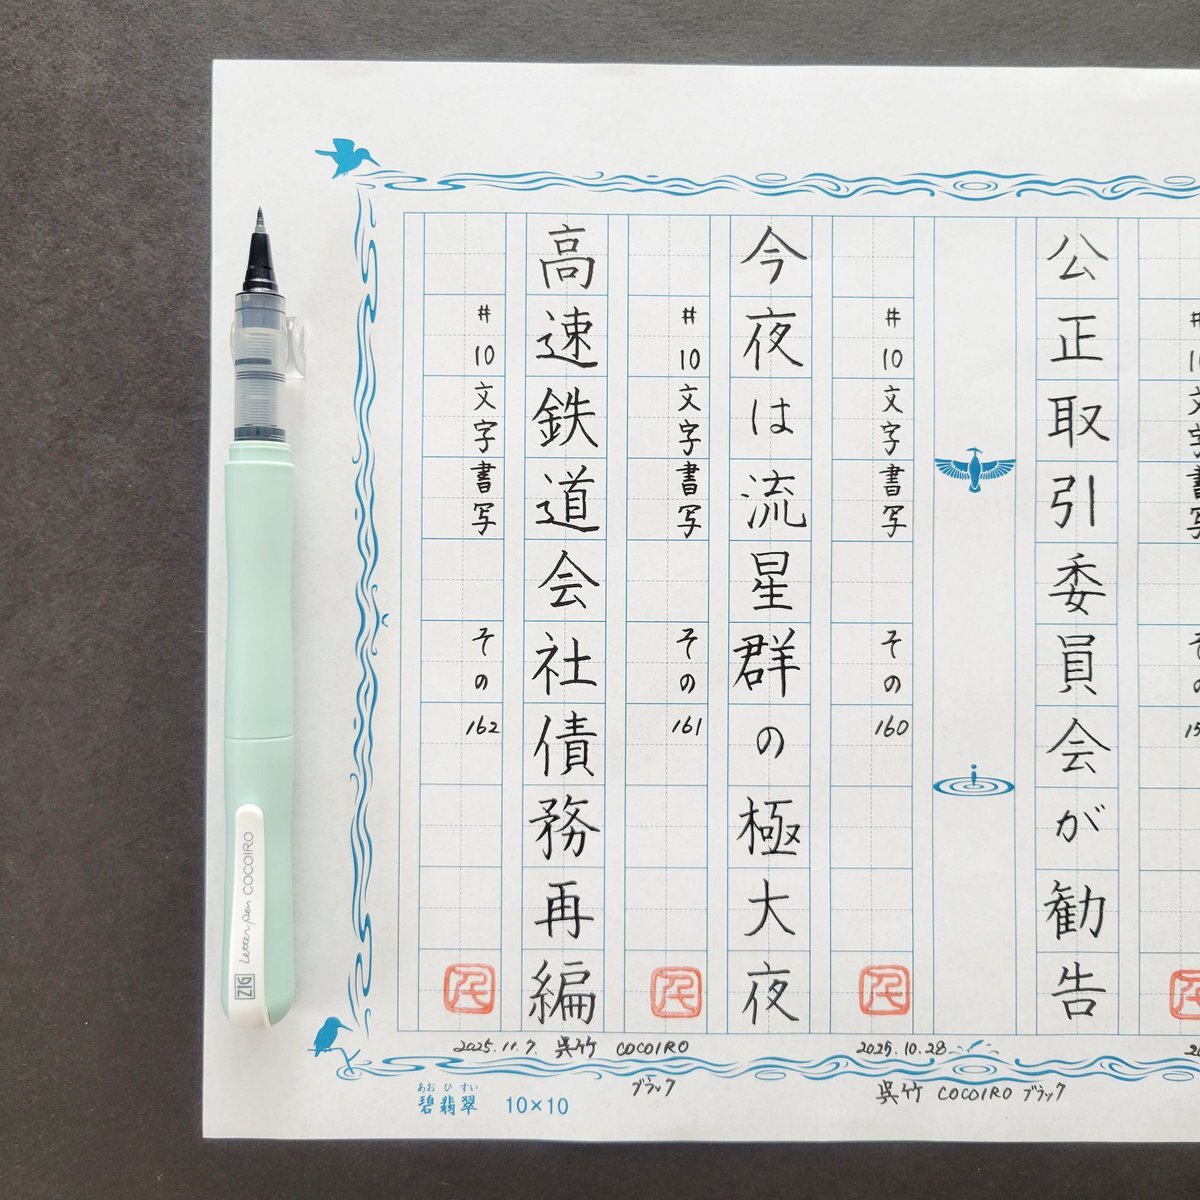 公正取引委員会が勧告
#10文字書写 その160
今夜は流星群の極大夜
#10文字書写 その161
高速鉄道会社債務再編
#10文字書写 その162
2025.10.28
呉竹 COCOIRO ブラック
2025.11.7. 呉竹 COCOIRO
ブラック
あお ひ すい
碧翡翠 10×10
ZIG Letter pen COCOIRO